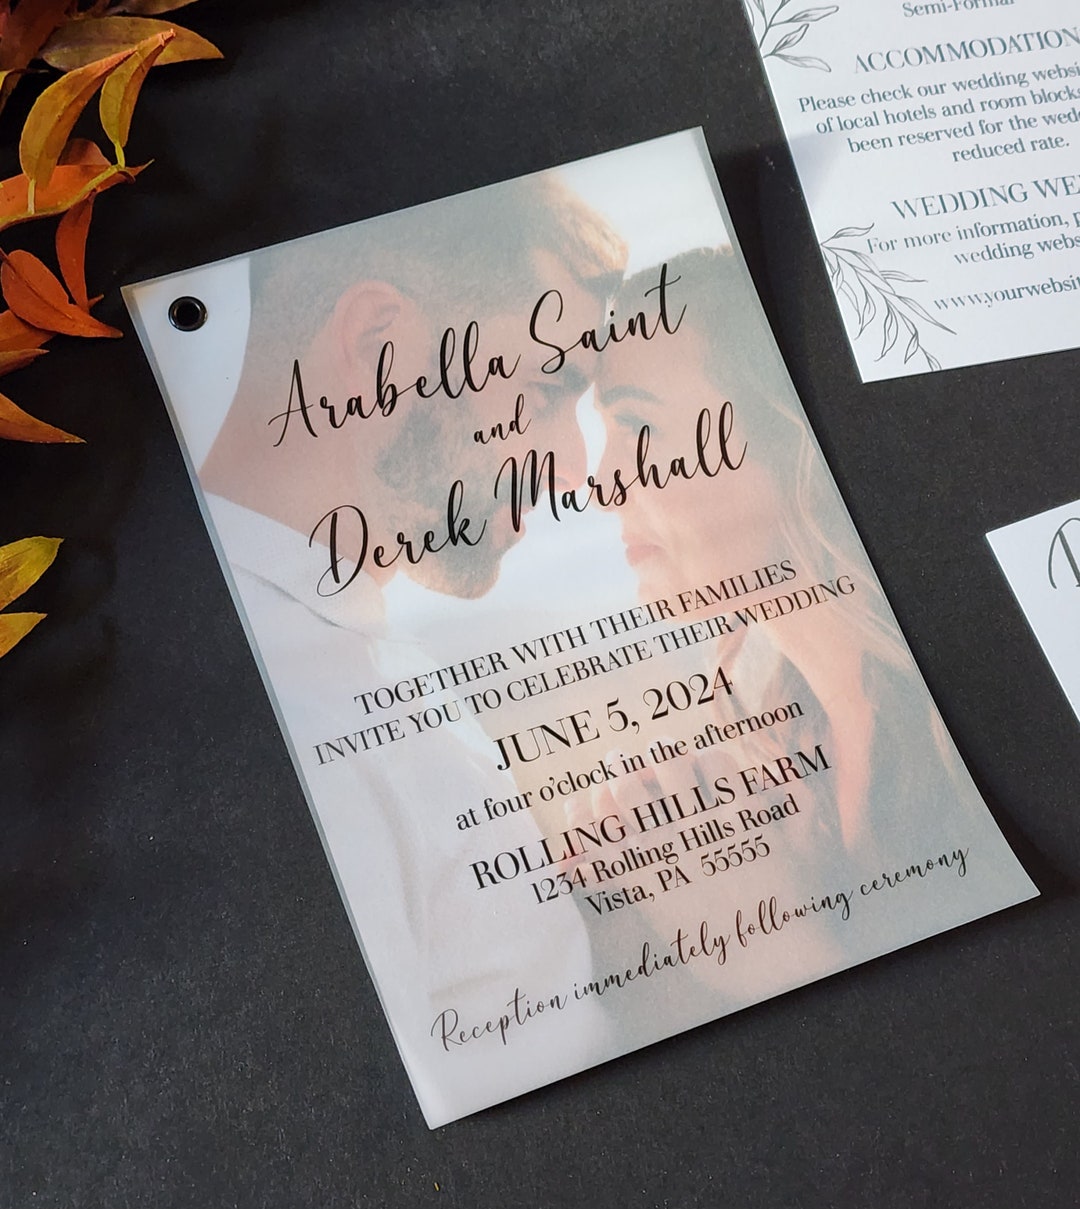 Arabella Saint
and
Derek Marshall
TOGETHER WITH THEIR FAMILIES
INVITE YOU TO CELEBRATE THEIR WEDDING
JUNE 5, 2024
at four o'clock in the afternoon
ROLLING HILLS FARM
1234 Rolling Hills Road
Vista, PA 55555
Reception immediately following ceremony
Semi-Formal
ACCOMMODATION
Please check our wedding websi
of local hotels and room blocks
been reserved for the wed
reduced rate.
WEDDING WE
For more information, p
wedding webs
www.yourwebsit